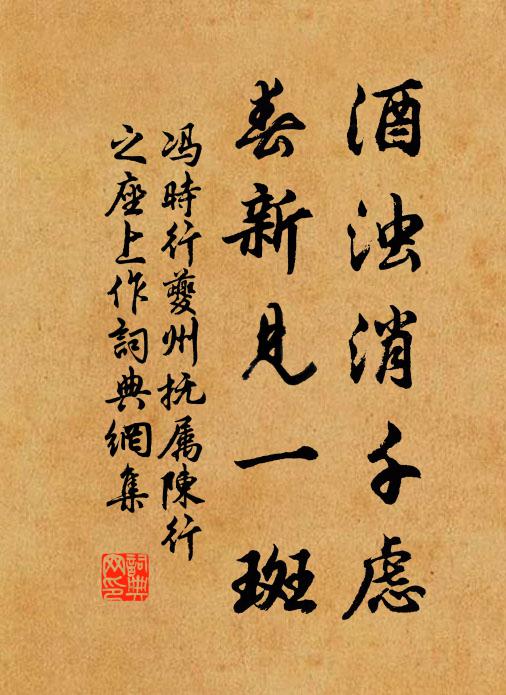 酒浊消千虑
春新见一斑
冯時行夔州抚属陳行
之座上作詞典網集
詞典网印